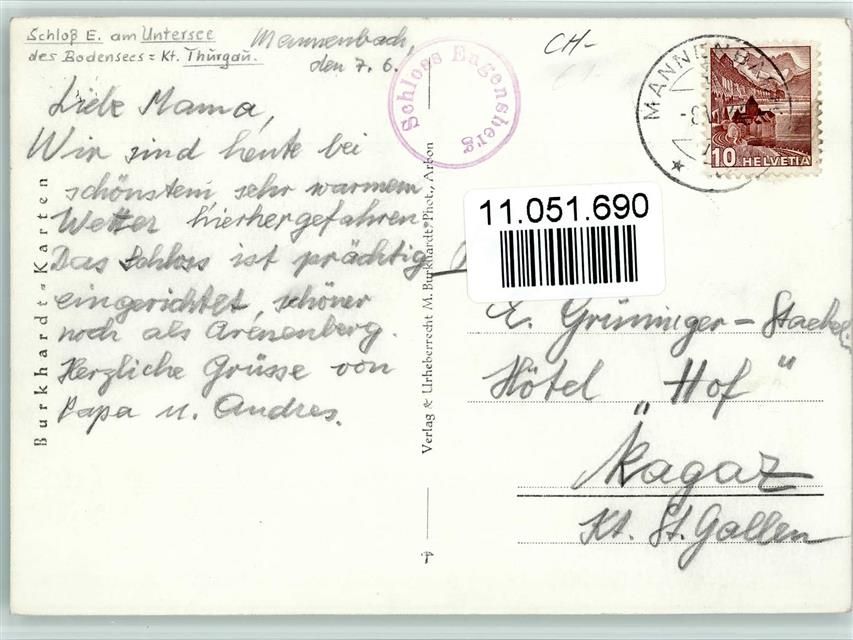 Schloß E. am Untersee
des Bodensees = Kt. Thurgau.
Mannenbach,
den 7. 6.
Liebe Mama,
Wir sind heute bei
schönstem, sehr warmem
Wetter hierhergefahren.
Das Schloss ist prächtig
eingerichtet, schöner
noch als Arenenberg.
Herzliche Grüsse von
Papa u. Andres.
Burkhardt-Karten
Schloss Eugensberg
Verlag & Urheberrecht M. Burkhardt, Phot., Arbon
CH-
MANNENBACH
10 HELVETIA
11.051.690
E. Grüninger-Staehelin
Hôtel "Hof"
Ragaz
Kt. St. Gallen